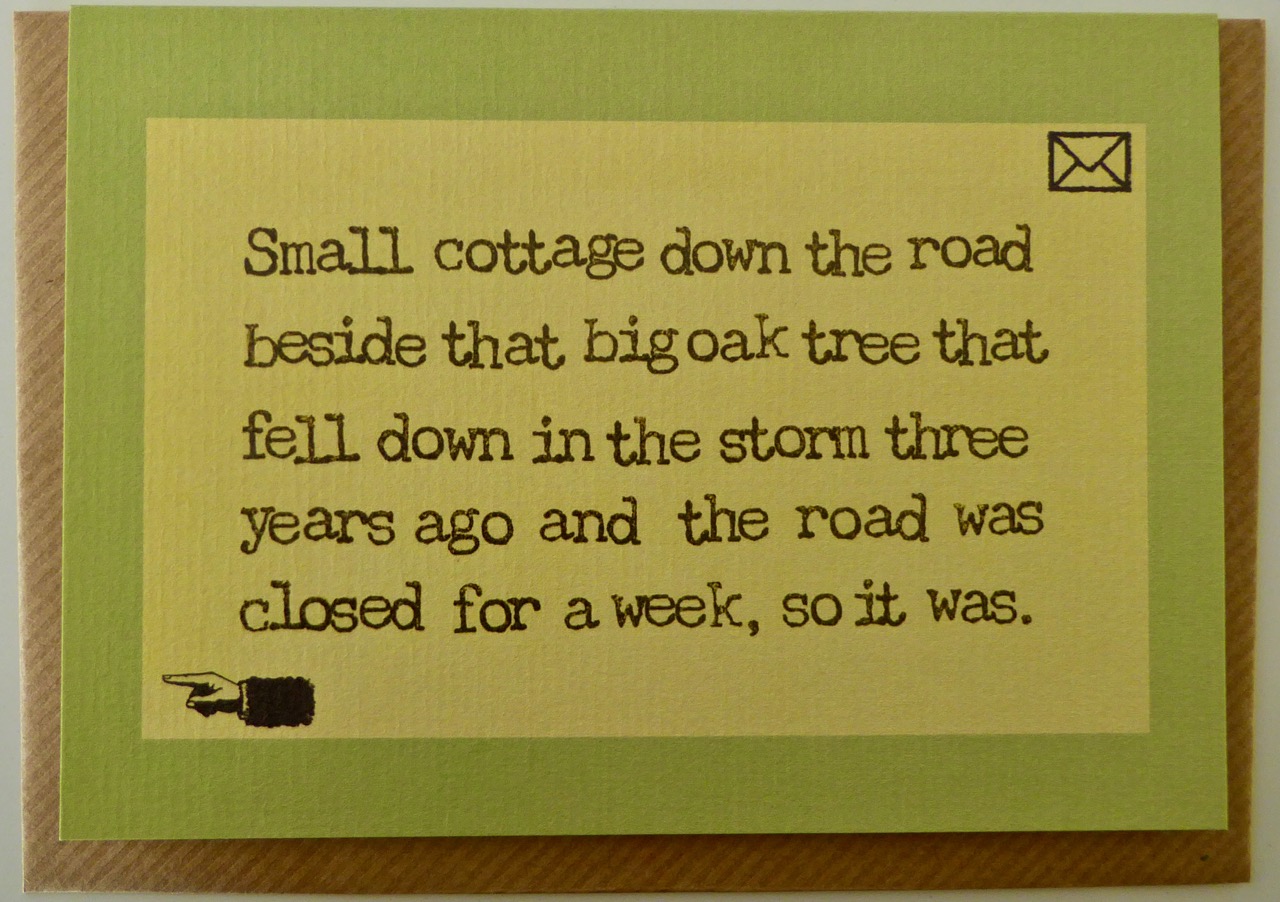 Small cottage down the road
beside that big oak tree that
fell down in the storm three
years ago and the road was
closed for a week, so it was.